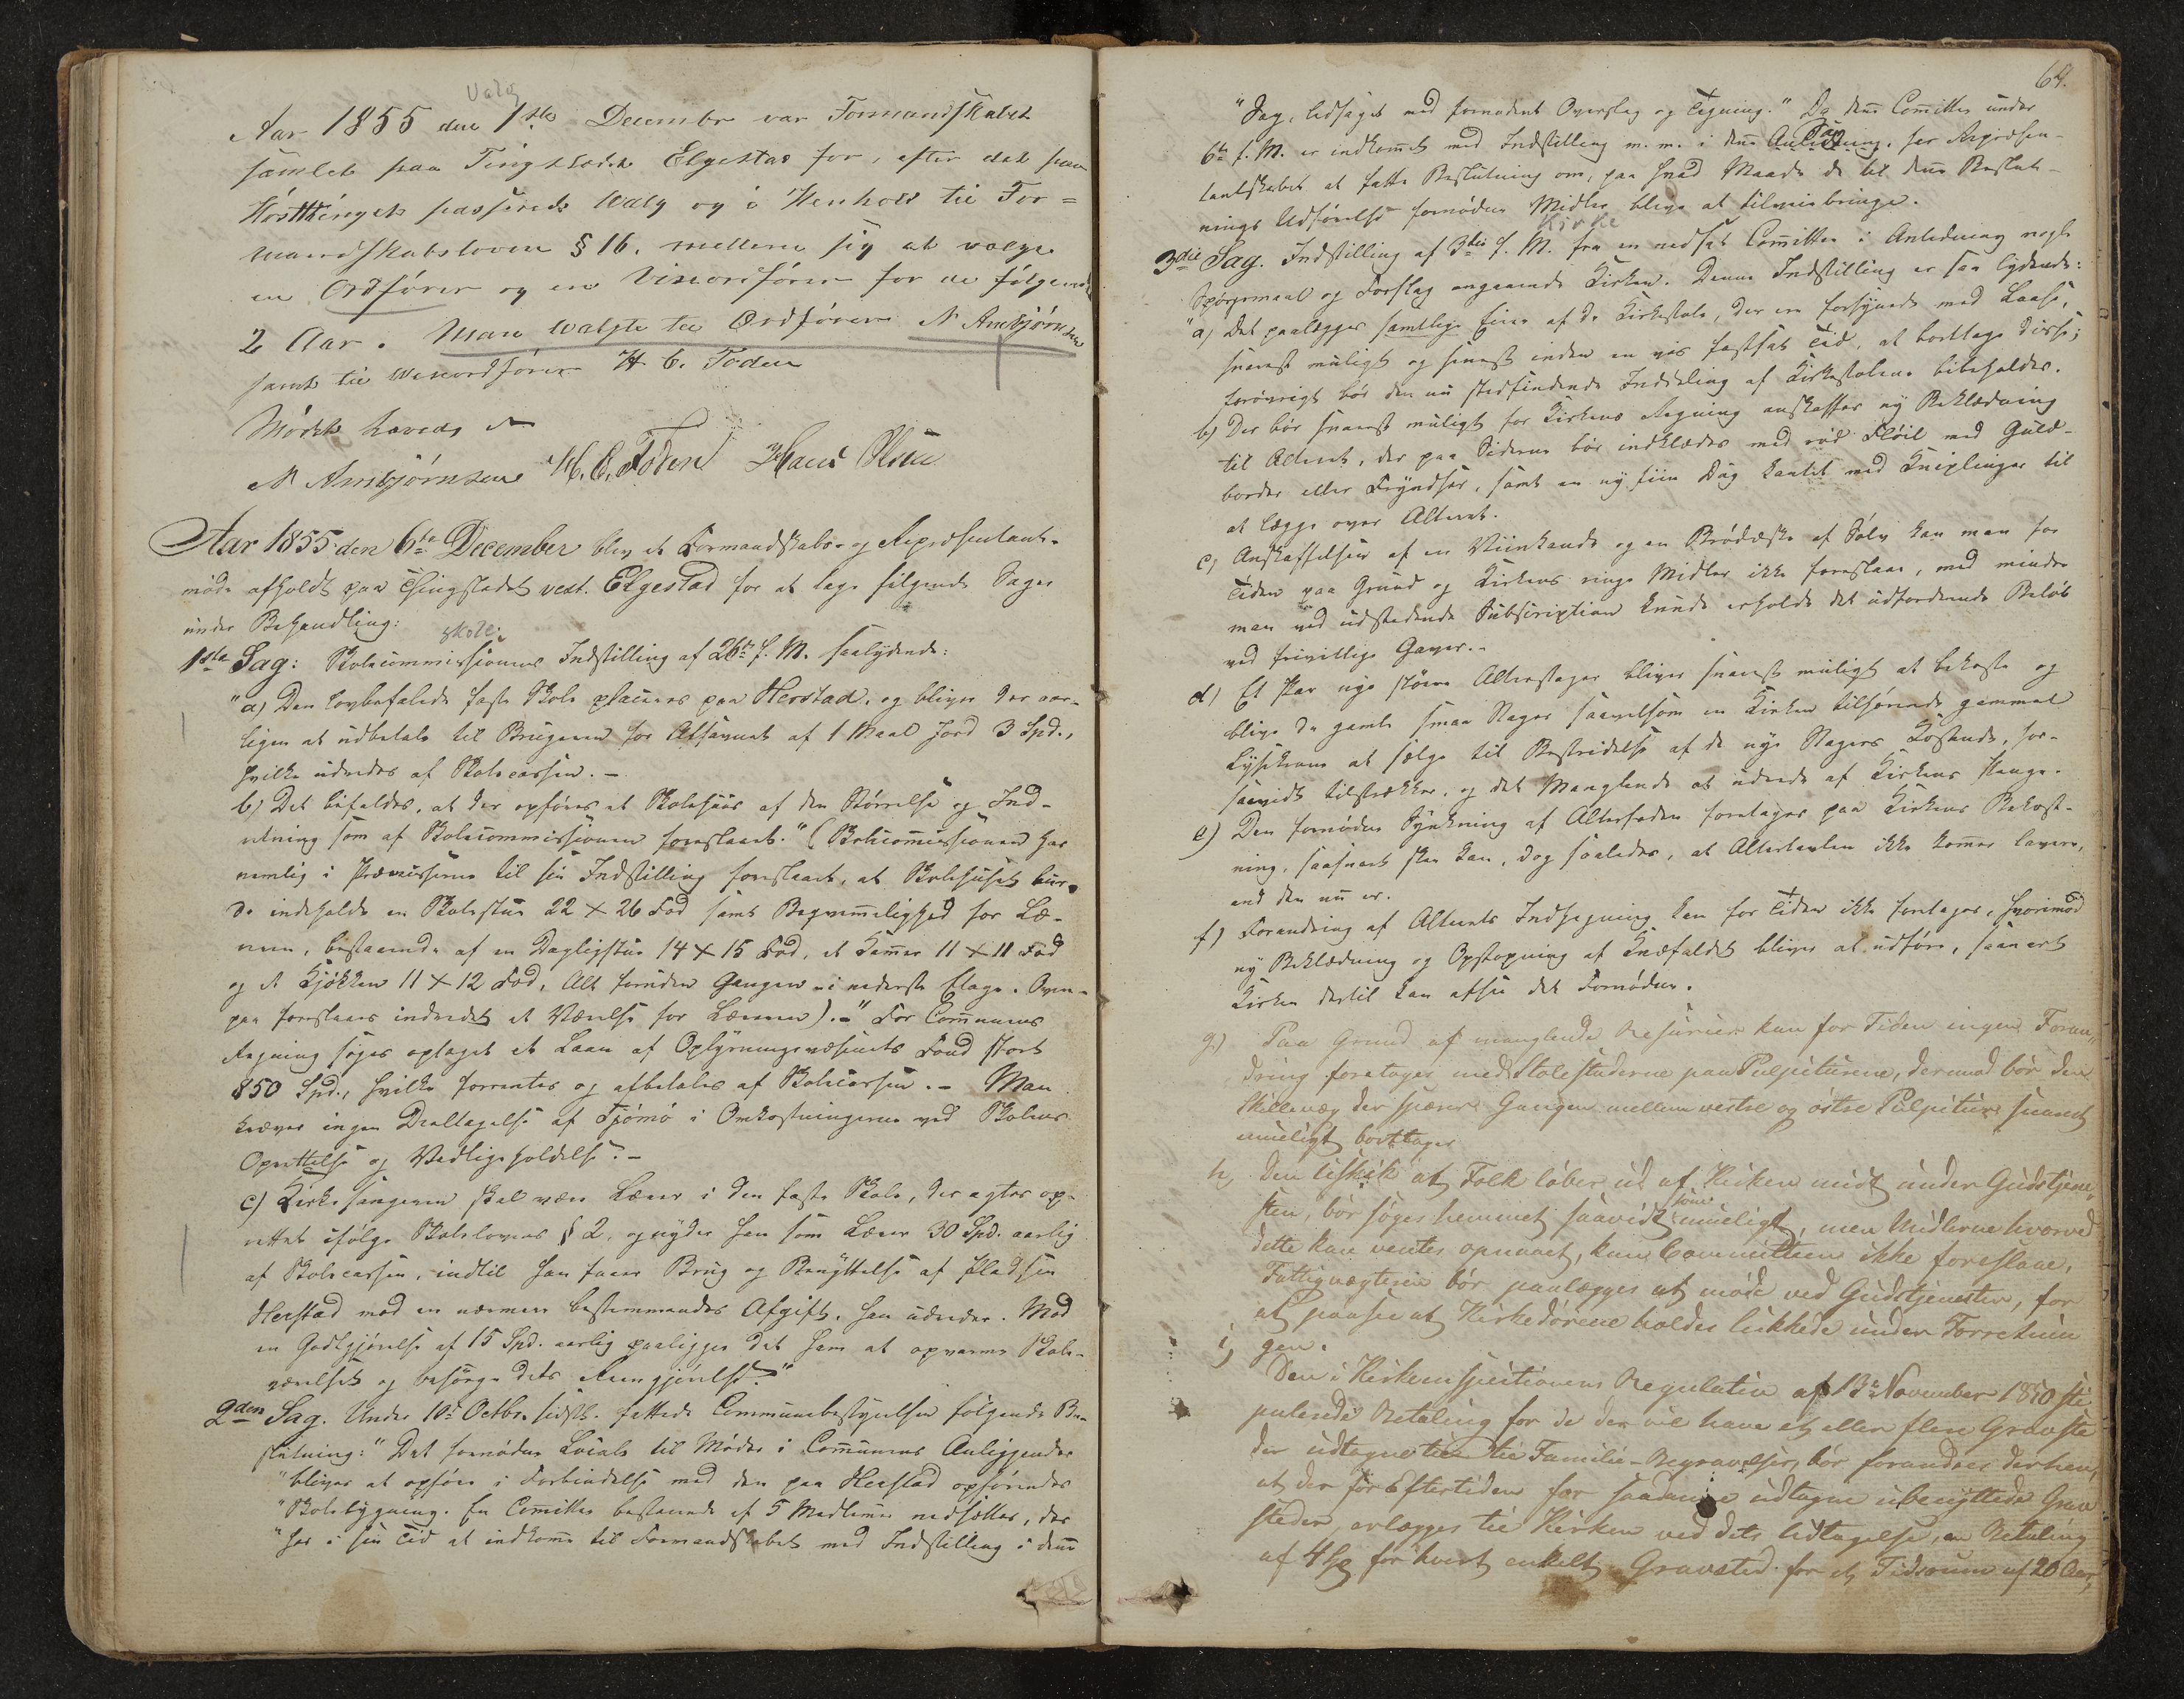 Valg
Aar 1855 den 1ste Decembr var Formandskabet
samlet paa Tingstedet Elgestad for, efter det paa
Høstthinget passerede Valg og i Henhold til For=
mandskabsloven § 16. mellem sig at vælge
en Ordfører og en Viseordfører for de følgende
2 Aar. Man valgte til Ordfører N Ambjørnsen
samt til Viseordfører H. C. Foden
Mødet hævedes
N Ambjørnsen H. C. Foden Hans
Aar 1855 den 6te December blev et Formandskabs- og Repræsentant-
møde afholdt paa Thingstedet vest. Elgestad for at tage følgende Sager
under Behandling:
Skole
1ste Sag: Skolecommissionens Indstilling af 26de f. M. saalydende:
"a) Den lovbefalede faste Skole placeres paa Herstad, og bliver der aar-
ligen at udbetale til Brugeren for Afsavnet af 1 Maal Jord 3 Spd.,
hvilke udredes af Skolecassen. –
b) Det bifaldes, at der opføres et Skolehuus af den Størrelse og Ind-
retning som af Skolecommissionen foreslaaet." (Skolecommissionen har
nemlig i Præmisserne til sin Indstilling foreslaaet, at Skolehuset bur-
de indeholde en Skolestue 22 X 26 Fod samt Beqvemmelighed for Læ-
reren, bestaaende af en Dagligstue 14 X 15 Fod, et Kammer 11 X 11 Fod
og et Kjøkken 11 X 12 Fod, Alt foruden Gangen i nederste Etage. Oven-
paa foreslaaes indredet et Værelse for Læreren). –" For Communens
Regning søges optaget et Laan af Oplysningsvæsenets Fond stort
850 Spd., hvilke forrentes og afbetales af Skolecassen. – Man
kræver ingen Deeltagelse af Tjømø i Omkostningerne ved Skolens
Oprettelse og Vedligeholdelse. –
c) Kirkesangeren skal være Lærer i den faste Skole, der agtes op-
rettet ifølge Skolelovens § 2, og nyder han som Lærer 30 Spd. aarlig
af Skolecassen, indtil han faaer Brug og Benyttelse af Pladsen
Herstad mod en nærmere bestemmendes Afgift, han udreder. Mod
en Godtgjørelse af 15 Spd. aarlig paaligger det ham at opvarme Skole-
værelset og besørge dets Reengjørelse."
2den Sag. Under 10de Octbr. sidstl. fattede Communebestyrelsen følgende Be-
slutning: "Det fornødne Locale til Møder i Communens Anliggender
"bliver at opføre i Forbindelse med den paa Herstad opførendes
"Skolebygning. En Committee bestaaende af 5 Medlemmer nedsættes, der
"har i sin Tid at indkomme til Formandskabet med Indstilling i denne
64.
"Sag, ledsaget med fornødent Overslag og Tegning." Da denne Committee under
6te f. M. er indkommet med Indstilling m. m. i denne Sag, har Repræsen-
tantskabet at fatte Beslutning om, paa hvad Maade de til denne Beslut-
nings Udførelse fornødne Midler blive at tilveiebringe.
Kirke
3die Sag. Indstilling af 3die f. M. fra en nedsat Committee i Anledning nogle
Spørgsmaal og Forslag angaaende Kirken. Denne Indstilling er saa lydende:
"a) Det paalægges samtlige Eiere af de Kirkestole, der ere forsynede med Laase,
snarest muligt og senest inden en vis fastsat Tid, at borttage disse;
forøvrigt bør den nu stedfindende Inddeling af Kirkestolene bibeholdes.
b) Der bør snarest muligt for Kirkens Regning anskaffes ny Beklædning
til Alteret, der paa Siderne bør indklædes med rød Fløil med Guld-
border eller Fryndser, samt en ny fiin Dug kantet med Kniplinger til
at lægge over Alteret.
c) Anskaffelsen af en Viinkande og en Brødæske af Sølv kan man for
Tiden paa Grund og Kirkens ringe Midler ikke foreslaae, med mindre
man ved udstedende Subscription kunde erholde det udfordrende Beløb
ved frivillige Gaver. –
d) Et Par nye større Alterstager bliver snarest muligt at bekoste og
blive de gamle smaa Stager saavelsom en Kirken tilhørende gammel
Lysekrone at sælge til Bestridelse af de nye Stagers Kostende, for-
saavidt tilstrækker, og det Manglende at udrede af Kirkens Penge.
e) Den fornødne Synkning af Alterfoden foretages paa Kirkens Bekost-
ning, saasnart skee kan, dog saaledes, at Altertavlen ikke kommer lavere,
end den nu er.
f) Forandring af Alterets Indhegning kan for Tiden ikke foretages, hvorimod
ny Beklædning og Opstopning af Knæfaldet bliver at udføre, saasnart
Kirken dertil kan afsee det Fornødne.
g.) Paa Grund af manglende Resurcer kan for Tiden ingen Foran„
dring foretages med Stolestaderne paa Pulpiturene, derimod bør den
Skillevæg der spærer Gangen mellem vestre og østre Pulpitur snarest
mueligt borttages
h, Den Uskik at Folk løber ud af Kirken midt under Gudstjene„
sten, bør søges hemmet saavidt som mueligt, men Midlerne hvorved
dette kan ventes opnaaet, kan Committeen ikke foreslaae,
Fattigvægteren bør paalægges at møde ved Gudstjenesten, for
at paasee at Kirkedørene holdes lukkede under Forretnin
gen.
i, Den i Kirkeinspectionens Regulativ af 13de November 1850 sti
pulerede Betaling for de der vil have et eller flere Gravste
der udtagne til Familie-Begravelser, bør forandres derhen,
at der for Eftertiden for saadanne udtagne ubenyttede Grav
steder, erlægges til Kirken ved dets Udtagelse, en Betaling
af 4 Sp for hvert enkelt Gravsted for et Tidsrum af 20 Aar,